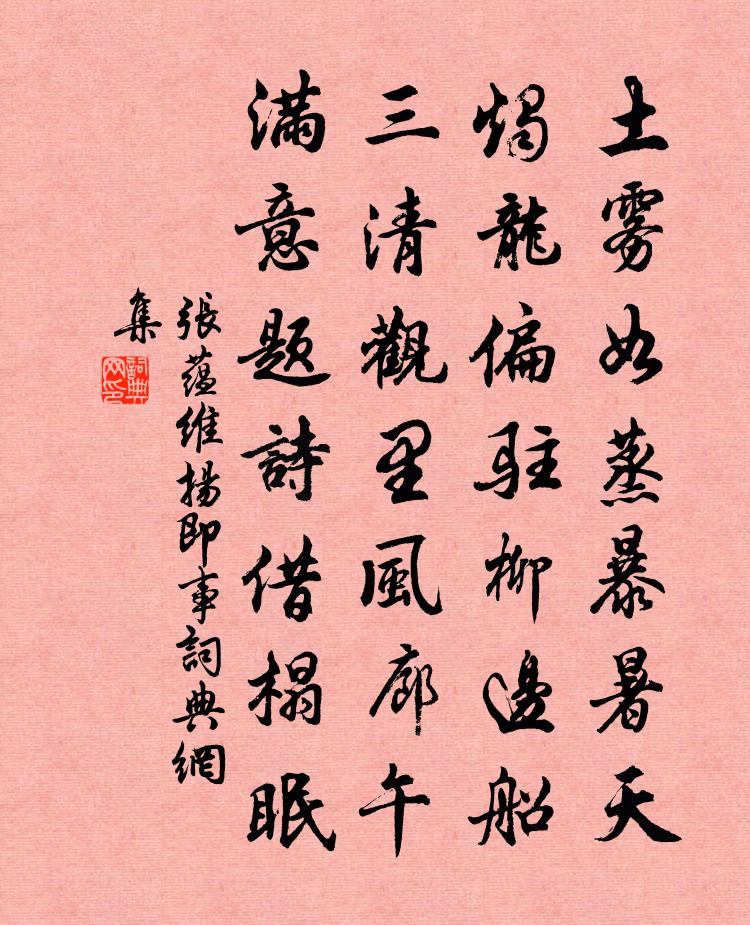 土雾如蒸暴暑天
燭龍偏駐柳邊船
三清觀里風廊午
满意题詩借榻眠
張藴維揚即事詞典網
集
詞典
网印